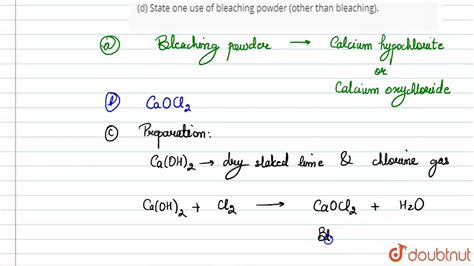 (d) State one use of bleaching powder (other than bleaching).
(a) Bleaching powder → Calcium hypochlorite
or
Calcium oxychloride
(b) CaOCl₂
(c) Preparation:
Ca(OH)₂ → dry slaked lime & chlorine gas
Ca(OH)₂ + Cl₂ → CaOCl₂ + H₂O
Bl
doubtnut